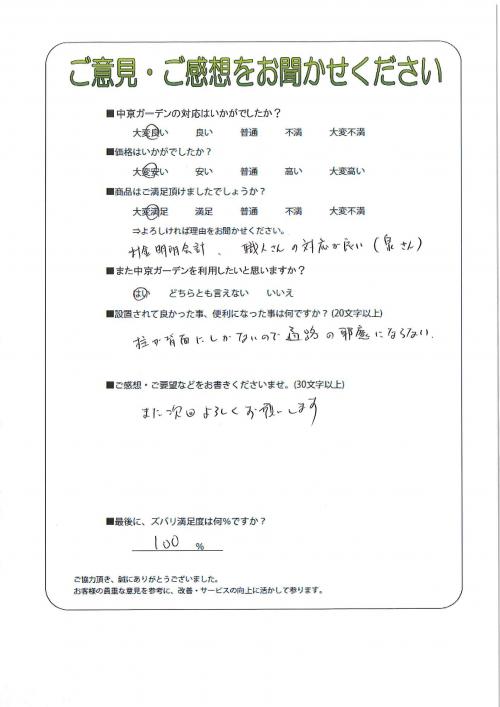 ご意見・ご感想をお聞かせください
■中京ガーデンの対応はいかがでしたか？
大変良い 良い 普通 不満 大変不満
■価格はいかがでしたか？
大変安い 安い 普通 高い 大変高い
■商品はご満足頂けましたでしょうか？
大変満足 満足 普通 不満 大変不満
⇒よろしければ理由をお聞かせください。
料金明朗会計、職人さんの対応が良い（泉さん）
■また中京ガーデンを利用したいと思いますか？
はい どちらとも言えない いいえ
■設置されて良かった事、便利になった事は何ですか？(20文字以上)
柱が背面にしかないので通路の邪魔にならない.
■ご感想・ご要望などをお書きくださいませ。(30文字以上)
また次回よろしくお願いします
■最後に、ズバリ満足度は何％ですか？
100 ％
ご協力頂き、誠にありがとうございました。
お客様の貴重な意見を参考に、改善・サービスの向上に活かして参ります。